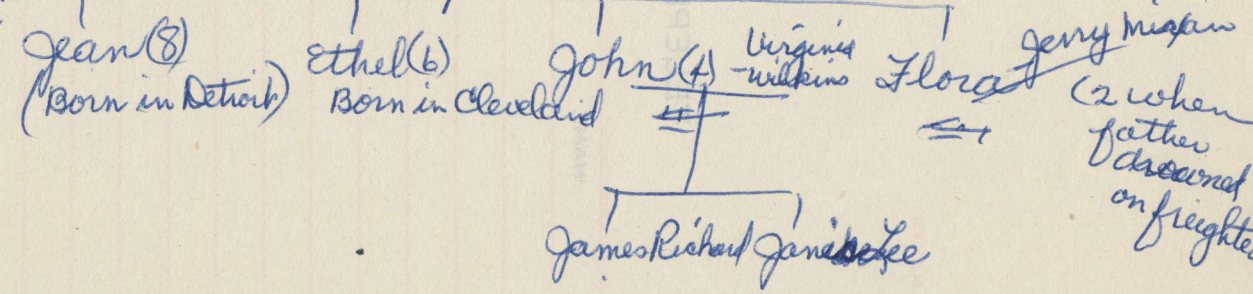 Jean (8)
(Born in Detroit)
Ethel (6)
Born in Cleveland
John (4)
Virginia
-Wilkins
Flora
Jerry
(2 when
father
drowned
on freighte
James Richard
Lee